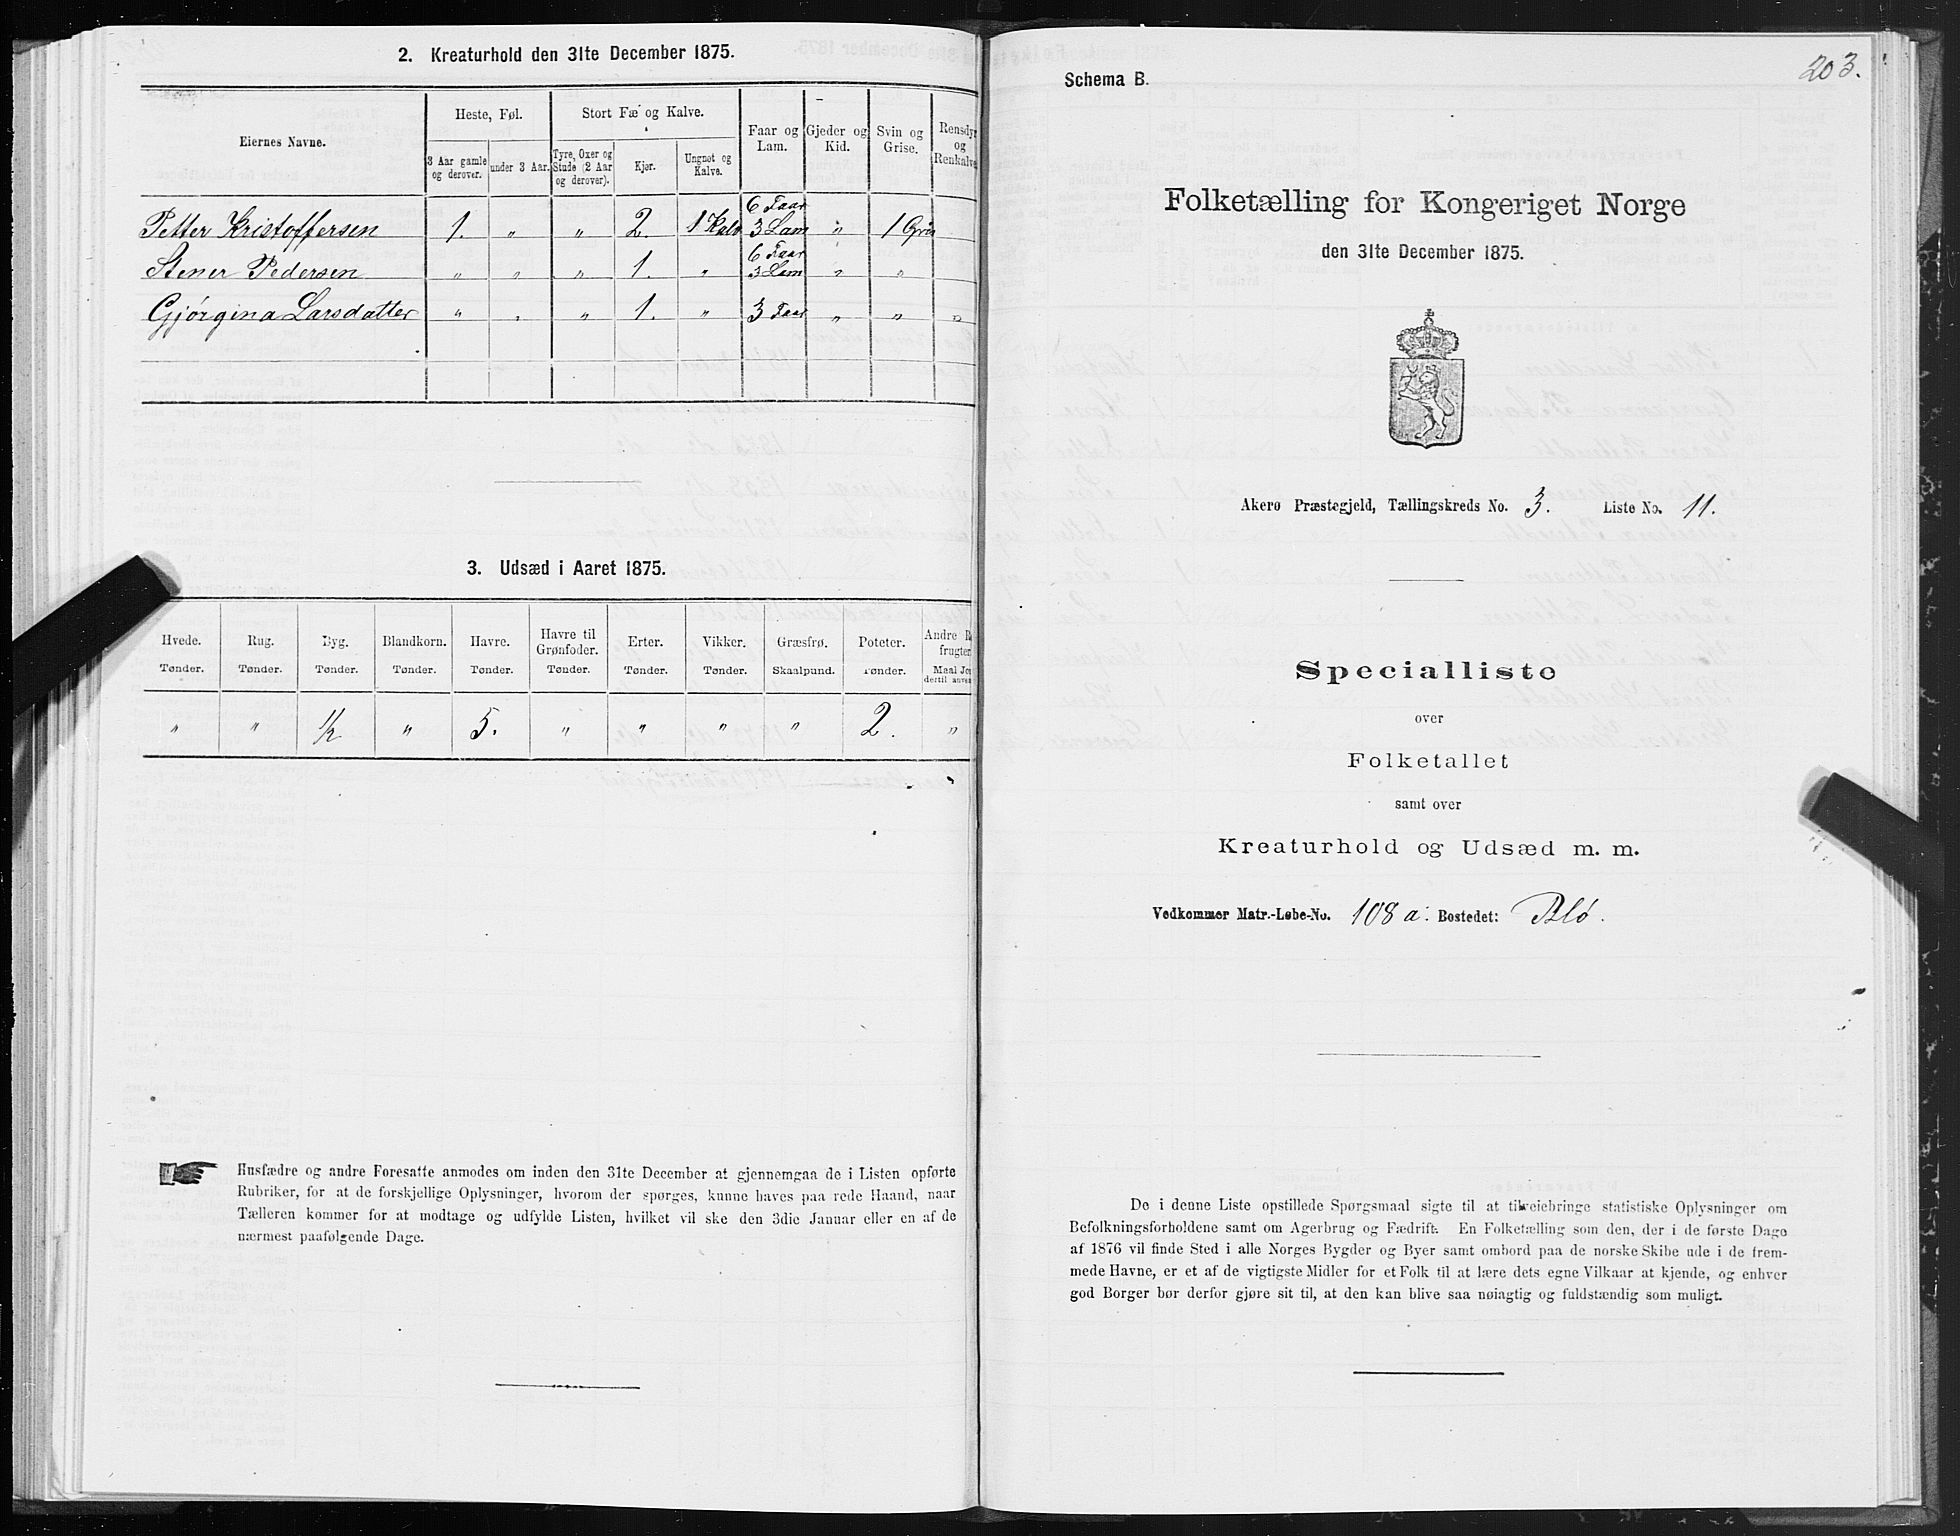 2. Kreaturhold den 31te December 1875.
Eiernes Navne.
Heste, Føl.
Stort Fæ og Kalve.
Faar og Lam.
Gjeder og Kid.
Svin og Grise.
Rensdyr og Renkalve
3 Aar gamle og derover.
under 3 Aar.
Tyre, Oxer og Stude (2 Aar og derover).
Kjør.
Ungnøt og Kalve.
Petter Kristoffersen 1. " " 2. 1 Kalv 6 Faar 3 Lam " 1 Gris
Stener Pedersen " " " 1. " 6 Faar 3 Lam " "
Gjørgina Larsdatter " " " 1. " 3 Faar " " "
3. Udsæd i Aaret 1875.
Hvede. Rug. Byg. Blandkorn. Havre. Havre til Grønfoder. Erter. Vikker. Græsfrø. Poteter. Andre R frugter
Tønder. Tønder. Tønder. Tønder. Tønder. Tønder. Tønder. Tønder. Skaalpund. Tønder. Maal Jo dertil anven
" " 1/2 " 5. " " " " 2. "
Husfædre og andre Foresatte anmodes om inden den 31te December at gjennemgaa de i Listen opførte
Rubriker, for at de forskjellige Oplysninger, hvorom der spørges, kunne haves paa rede Haand, naar
Tælleren kommer for at modtage og udfylde Listen, hvilket vil ske den 3die Januar eller en af de
nærmest paafølgende Dage.
203.
Schema B.
Folketælling for Kongeriget Norge
den 31te December 1875.
Akerø Præstegjeld, Tællingskreds No. 3. Liste No. 11.
Specialliste
over
Folketallet
samt over
Kreaturhold og Udsæd m. m.
Vedkommer Matr.-Løbe-No. 108 a. Bostedet: Blø.
De i denne Liste opstillede Spørgsmaal sigte til at tilveiebringe statistiske Oplysninger om
Befolkningsforholdene samt om Agerbrug og Fædrift. En Folketælling som den, der i de første Dage
af 1876 vil finde Sted i alle Norges Bygder og Byer samt ombord paa de norske Skibe ude i de frem-
mede Havne, er et af de vigtigste Midler for et Folk til at lære dets egne Vilkaar at kjende, og enhver
god Borger bør derfor gjøre sit til, at den kan blive saa nøiagtig og fuldstændig som muligt.